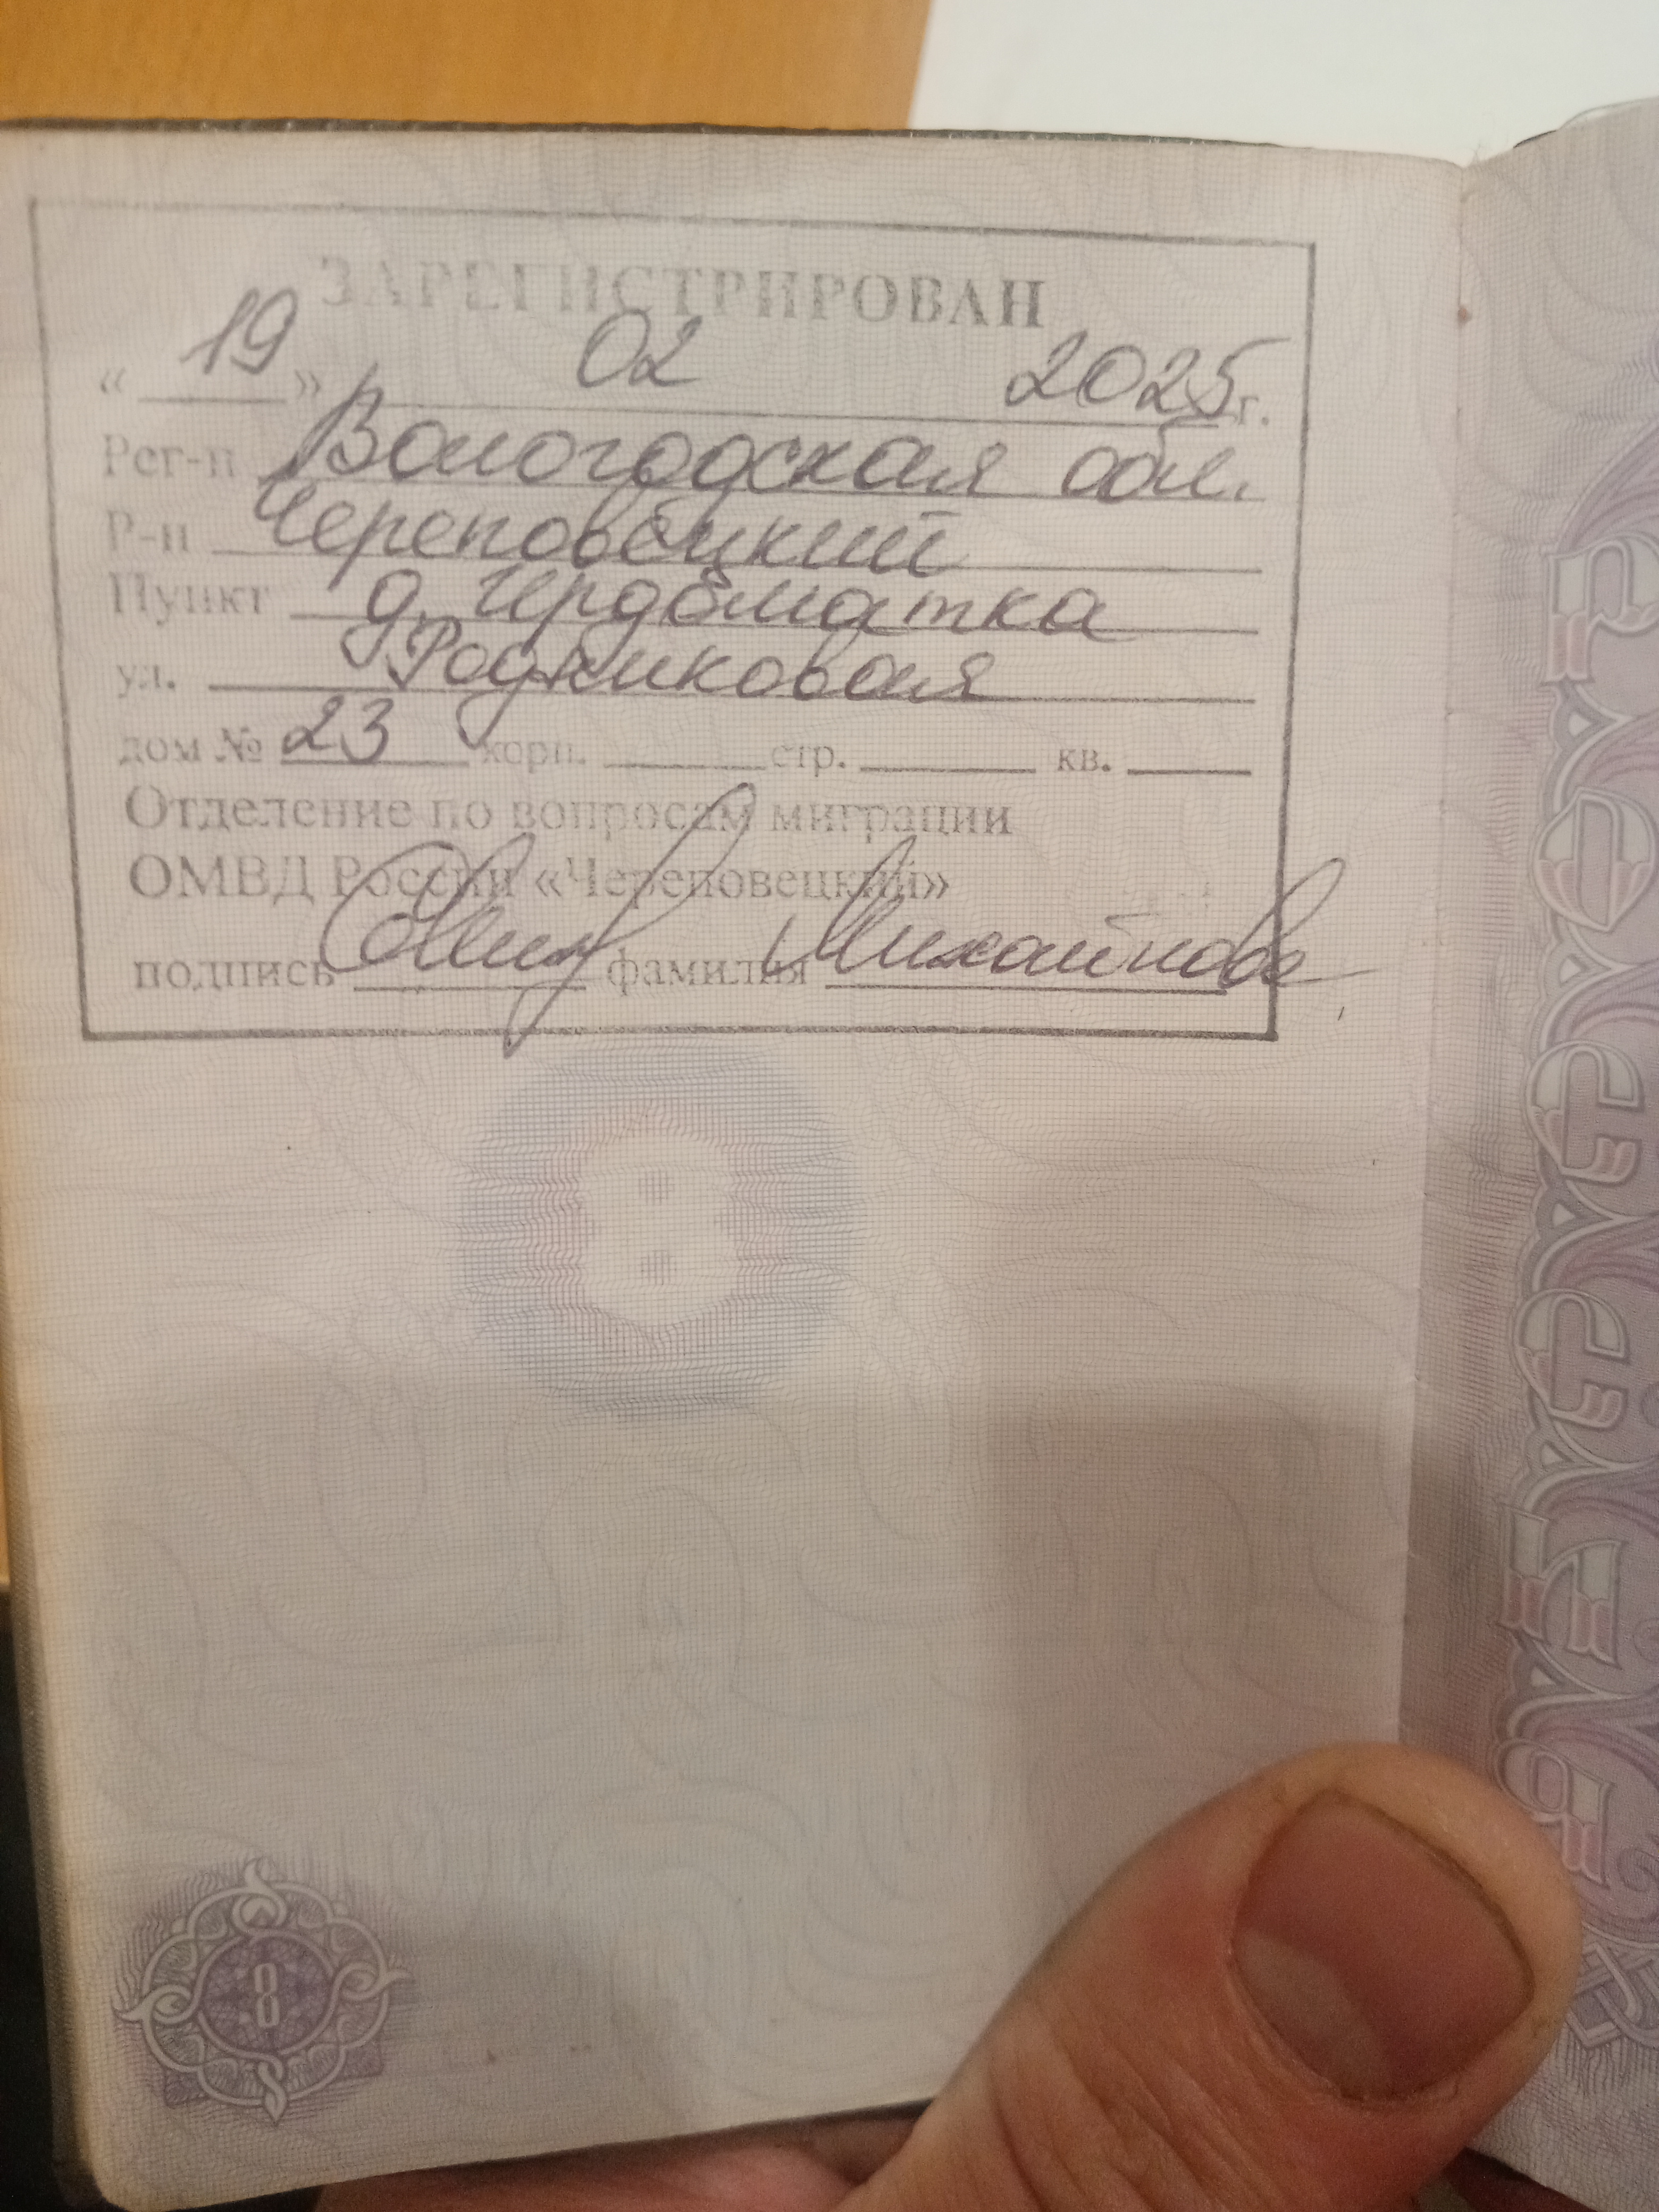 ЗАРЕГИСТРИРОВАН
« 19 » 02 2025 г.
Рег-н Вологодская обл.
Р-н Череповецкий
Пункт д. Ирдоматка
ул. Родниковая
дом № 23 корп. стр. кв.
Отделение по вопросам миграции
ОМВД России «Череповецкий»
подпись фамилия Михайлова
8
8